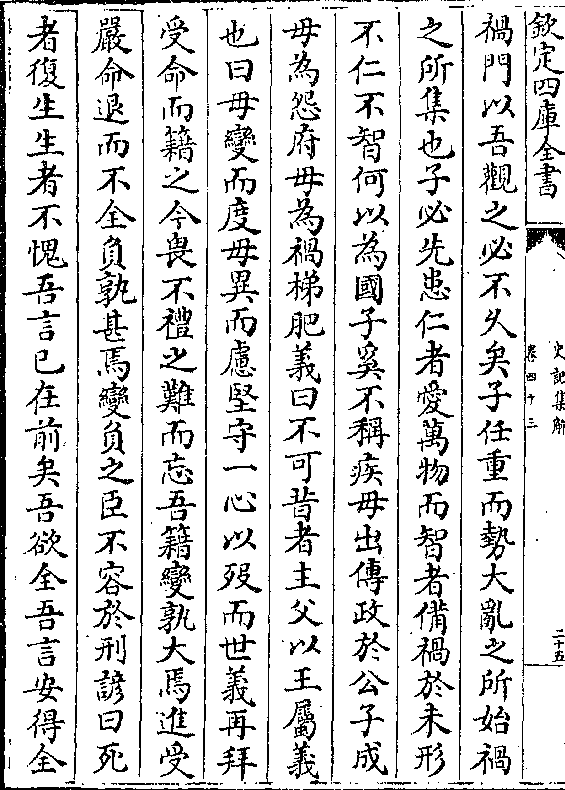 欽定四庫全書
史記集解
卷四十三
二十五
禍門以吾觀之必不久矣子任重而勢大亂之所始禍
之所集也子必先患仁者愛萬物而智者備禍於未形
不仁不智何以為國子奚不稱疾毋出傳政於公子成
毋為怨府毋為禍梯肥義曰不可昔者主父以王屬義
也曰毋變而度毋異而慮堅守一心以歿而世義再拜
受命而籍之今畏不禮之難而忘吾籍變孰大焉進受
嚴命退而不全負孰甚焉變負之臣不容於刑諺曰死
者復生生者不愧吾言已在前矣吾欲全吾言安得全